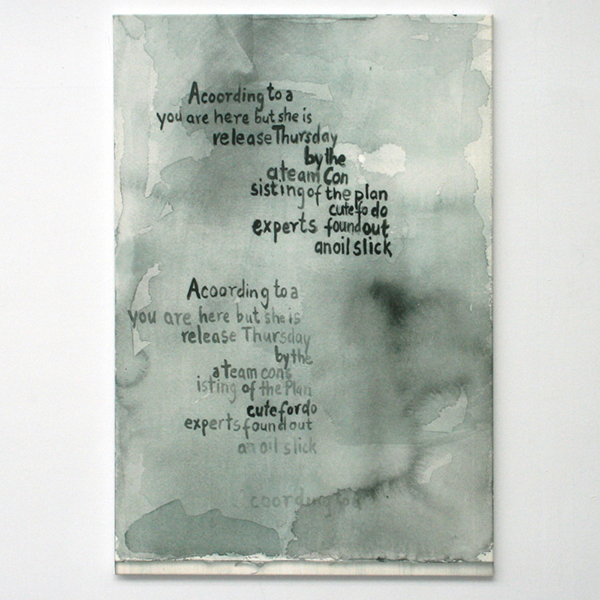 Acoording to a
you are here but she is
release Thursday
by the
a team Con
sisting of the plan
cute fo do
experts found out
an oil slick
Acoording to a
you are here but she is
release Thursday
by the
a team cons
isting of the Plan
cute for do
experts found out
an oil slick
coording to a